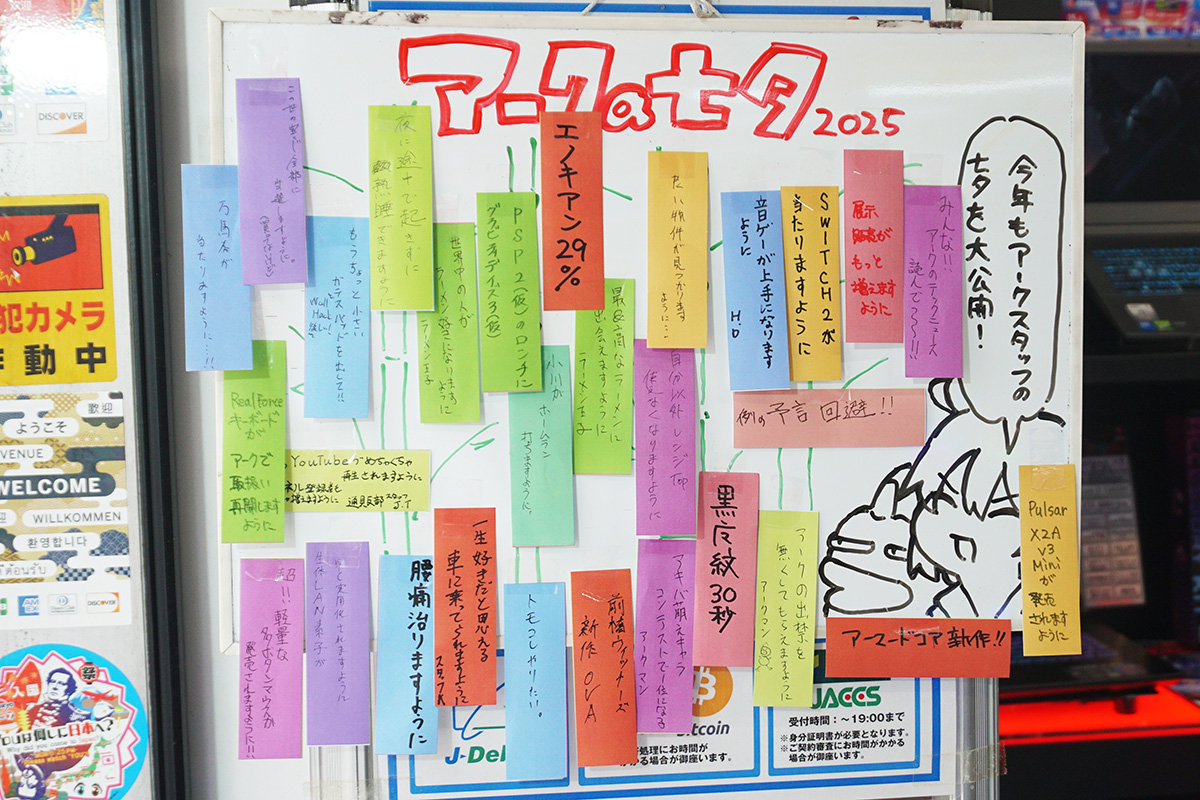 アークの七夕 2025
今年もアークスタッフの
七夕を大公開!
万馬券が
当たりますように…!!
もうちょっと小さい
ガラスパッドを出して!!
夜に途中で起きずに
熟睡できますように
世界中の人が
ラーメン好きになります
ように
ラーメン王子
PSP2(仮)のロンチに
グラビティデイズ3(仮)
エノキアン29%
小川が
ホームラン
打ちますように。
最&高なラーメンに
出会えますように
ラーメン王子
たい物件が見つかります
ように…
自分以外レンジTop
使えなくなりますように
音ゲーが上手になります
ように
H.O
SWITCH2が
当たりますように
展示
もっと
増えますように
みんな!!
アークのテックニュース
読んでくろ〜!!
例の予言回避!!
RealForce
キーボードが
アークで
取扱い
再開します
ように
YouTubeがめちゃくちゃ
再生されますように
ネル登録者も
増えますように
通販部 スタッフ
J.T
超!!軽量な
多ボタンマウスが
発売されますように!!
実用化されますように
腰痛治りますように
一生好きだと思える
車に乗ってられますように
スタッフK
トモコレやりたい。
前橋ウィッチーズ
新作 OVA
アキバ萌えキャラ
コンテストで1位になる
アークマン
黒点紋30秒
アークの出禁を
無くしてもらえますように
アークマン
アーマードコア新作!!
Pulsar
X2A
v3
Miniが
発売
されます
ように
DISCOVER
犯カメラ
作動中
歓迎
ようこそ
VENUE
WELCOME
WILLKOMMEN
환영합니다
DISCOVER
祭
入国
日本へ?
J-Del
処理にお時間が
かかる場合が御座います。
JACCS
受付時間:〜19:00まで
※身分証明書が必要となります。
※ご契約審査にお時間がかかる
場合が御座います。